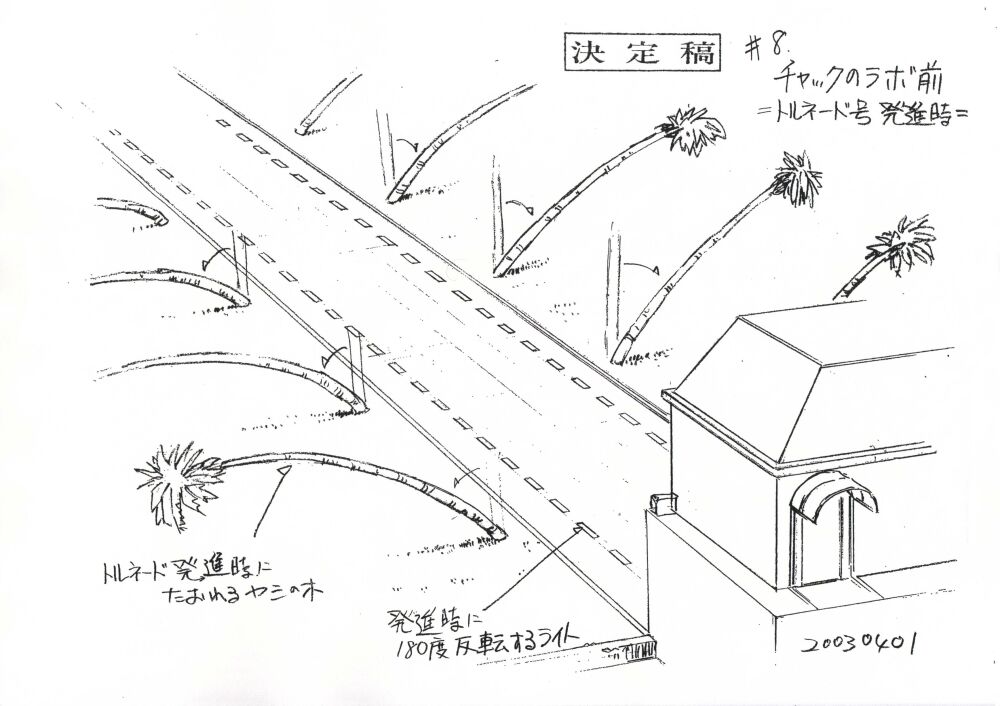 決定稿
#8.
チャックのラボ前
=トルネード号 発進時=
トルネード発進時に
たおれるヤシの木
発進時に
180度反転するライト
20030401